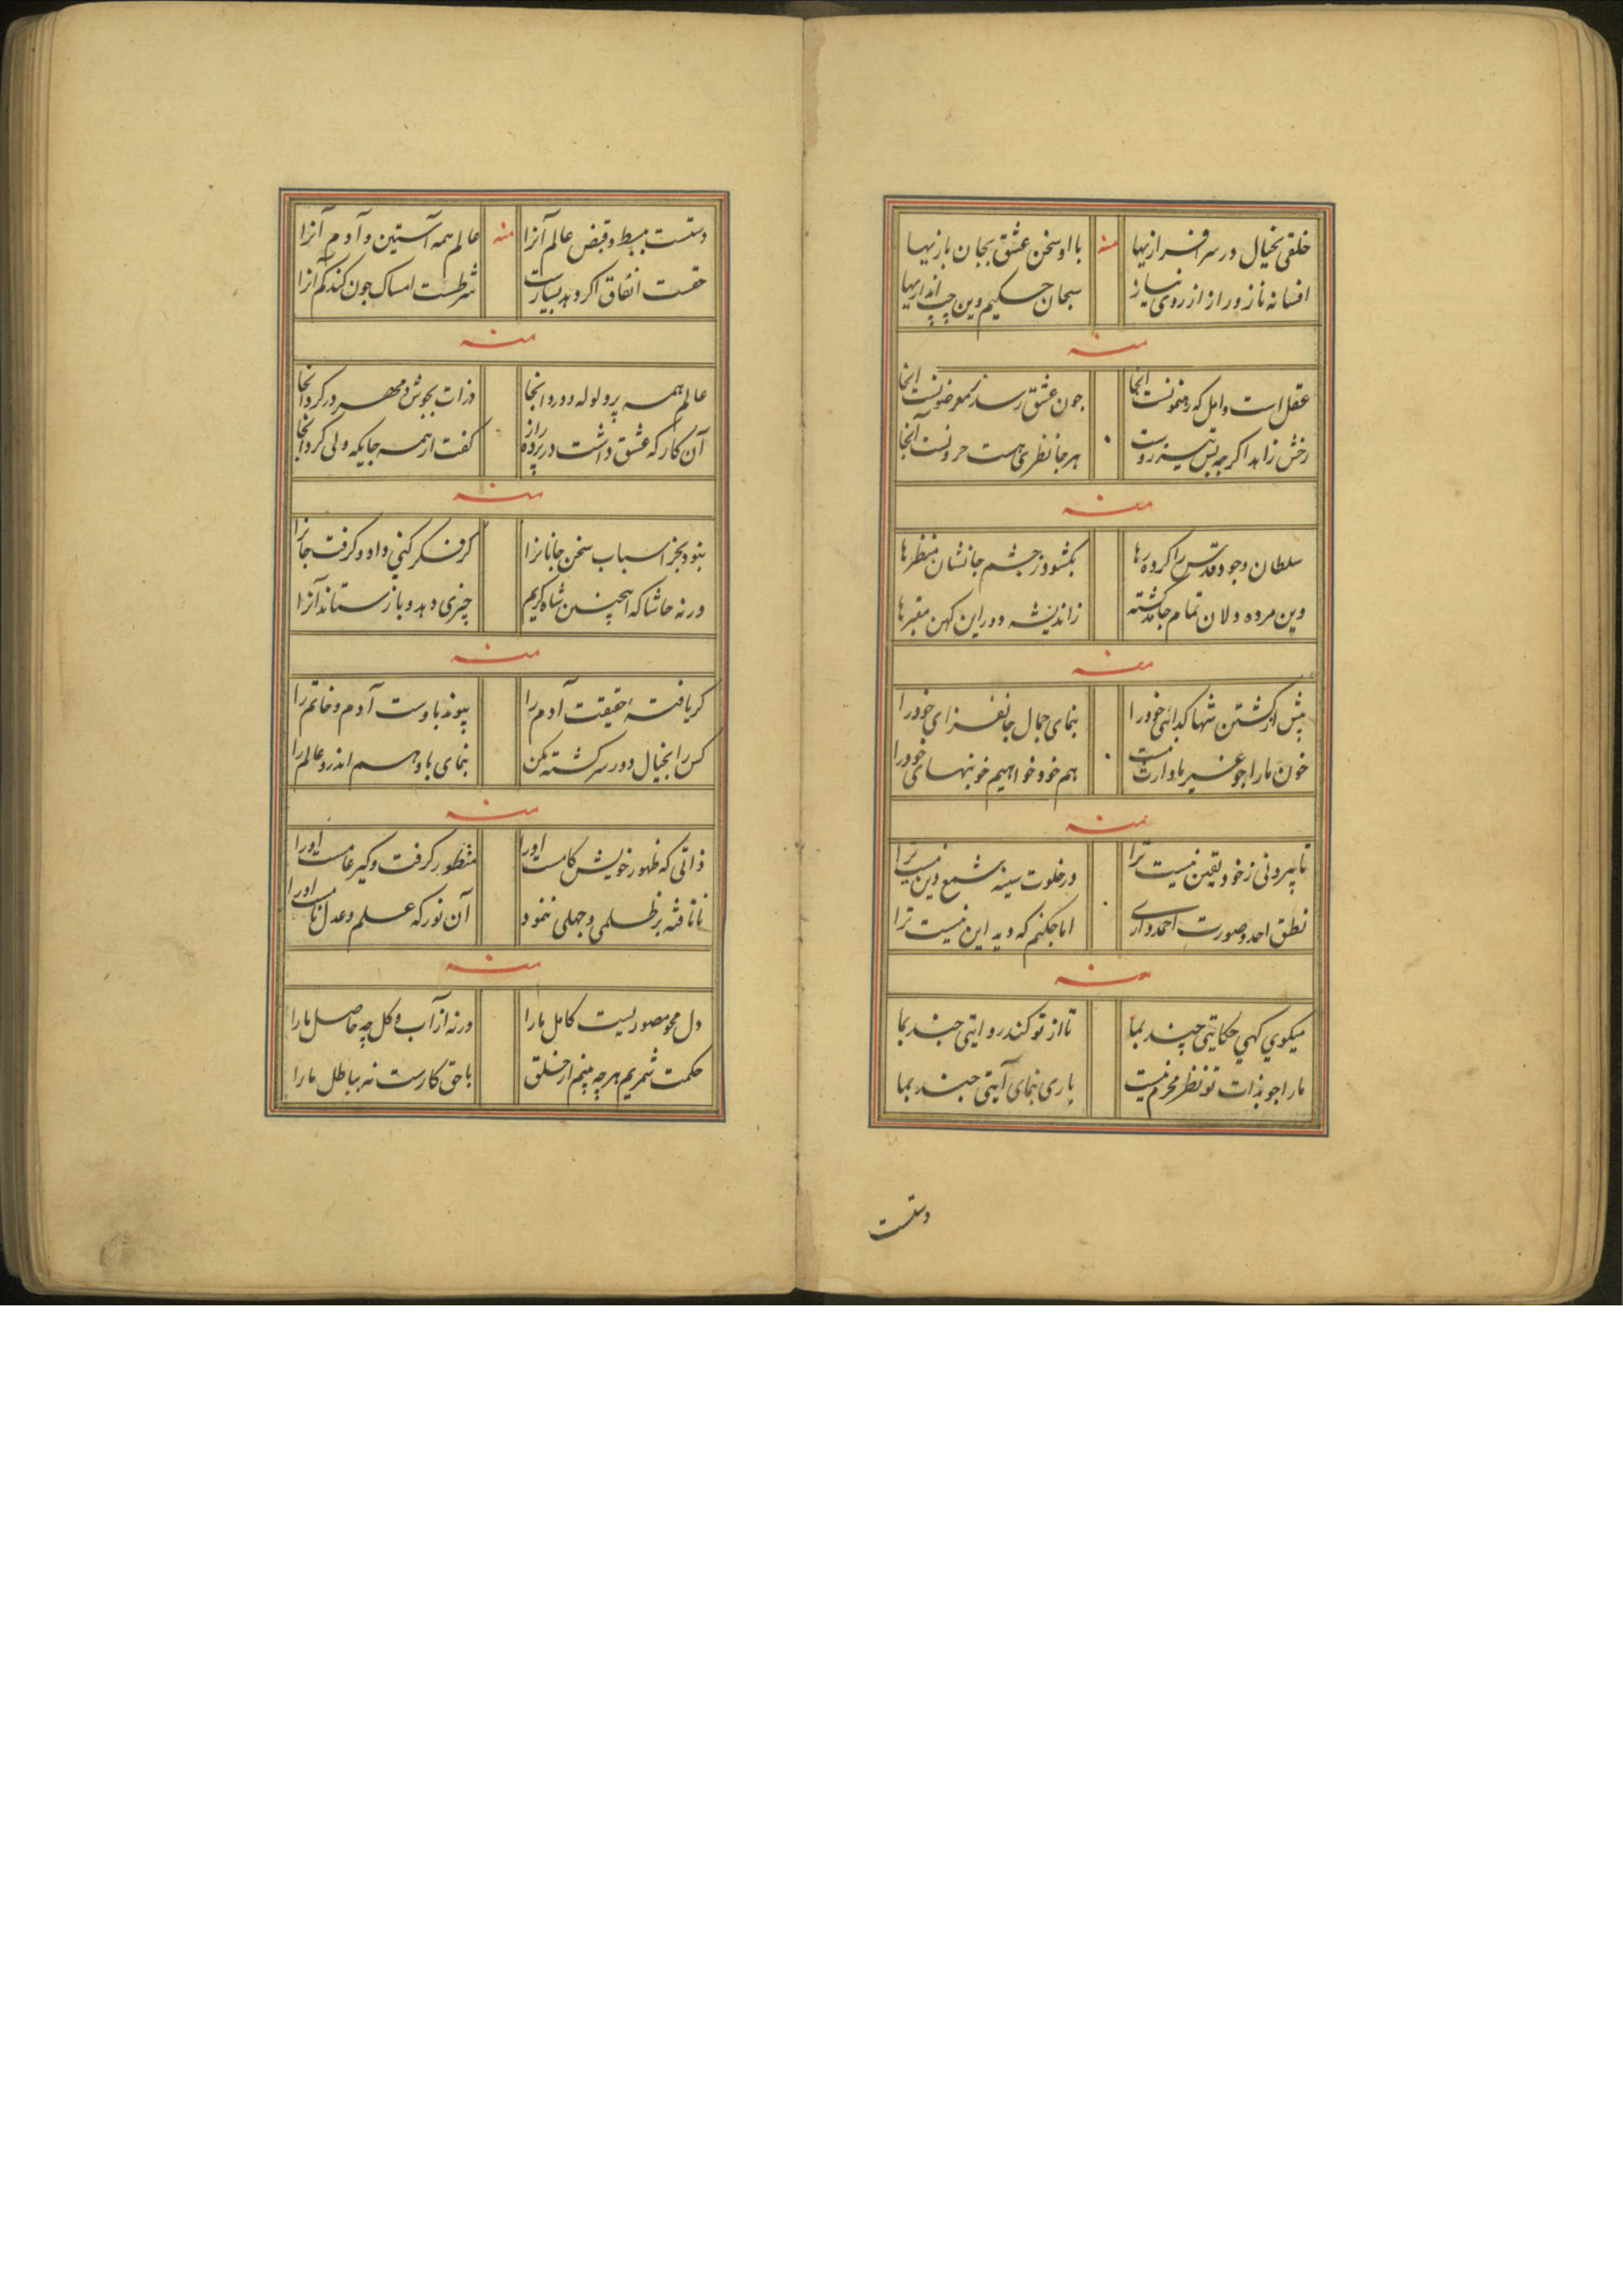 خلقی بخیال در سرافرازیها منه با او سخن عشق بجان بازیها
افسانه ناز و راز از روی نیاز سبحان حکیم وین چه اندازیها
منه
عقل است و امل که رهنمونست آنجا چون عشق رسد
رخش زاهد اکرچه بس تیزروست هر جا نظری هست حرونست آنجا
منه
سلطان وجود قدس را کرده رها بکشود ز چشم جانشان منظرها
وین مرده دلان تمام جا کشته ز اندیشه دور این کهن مقبرها
منه
پیش از کشتن شها کدائی خود را بنمای جمال جانفزای خود را
خون ما را جو غیر ما وارث نیست هم خود خواهیم خونبهای خود را
منه
تا بیرونی ز خود یقین نیست ترا در خلوت سینه شمع دین نیست ترا
نطق احد و صورت احمد داری اما جکنم که دید این نیست ترا
منه
میکوی کهی حکایتی چند بما تا از تو کند روایتی جند بما
ما را جو بذات تو نظر محرم نیست باری بنمای آیتی جند بما
دستست
دستست ببسط و قبض عالم آنرا منه عالم همه آستین و آدم آنرا
حقست انفاق اکر دهد بسیارت شرطست امساک جون کند کم آنرا
منه
عالم همه پر ولوله و درد آنجا ذرات بجوش و مهر در کرد آنجا
آن کار که عشق داشت در پرده راز کفت از همه جا یکه ولی کرد آنجا
منه
نبود بجز اسباب سخن جانانرا کر فکر کنی داد و کرفت جانرا
ورنه حاشا که اینچنین شاه کریم چیزی دهد و باز ستاند آنرا
منه
کر یافتهٔ حقیقت آدم را پیوند بدوست آدم و خاتم را
کس را بخیال دور سرکشته مکن بنمای باو هم اندرو عالم را
منه
ذاتی که ظهور خویش کامست او را منظور کرفت و کیر عامست او را
ناتافته بر ظلمی و جهلی ننمود آن نور که علم و عدل نامست او را
منه
دل محو مصوریست کامل ما را ورنه از آب و کل چه حاصل ما را
حکمت شمریم هرچه بینیم از خلق با حق کارست نه بباطل ما را